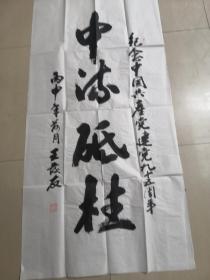 纪念中国共产党建党九十五周年
中流砥柱
丙申年荷月王茂友